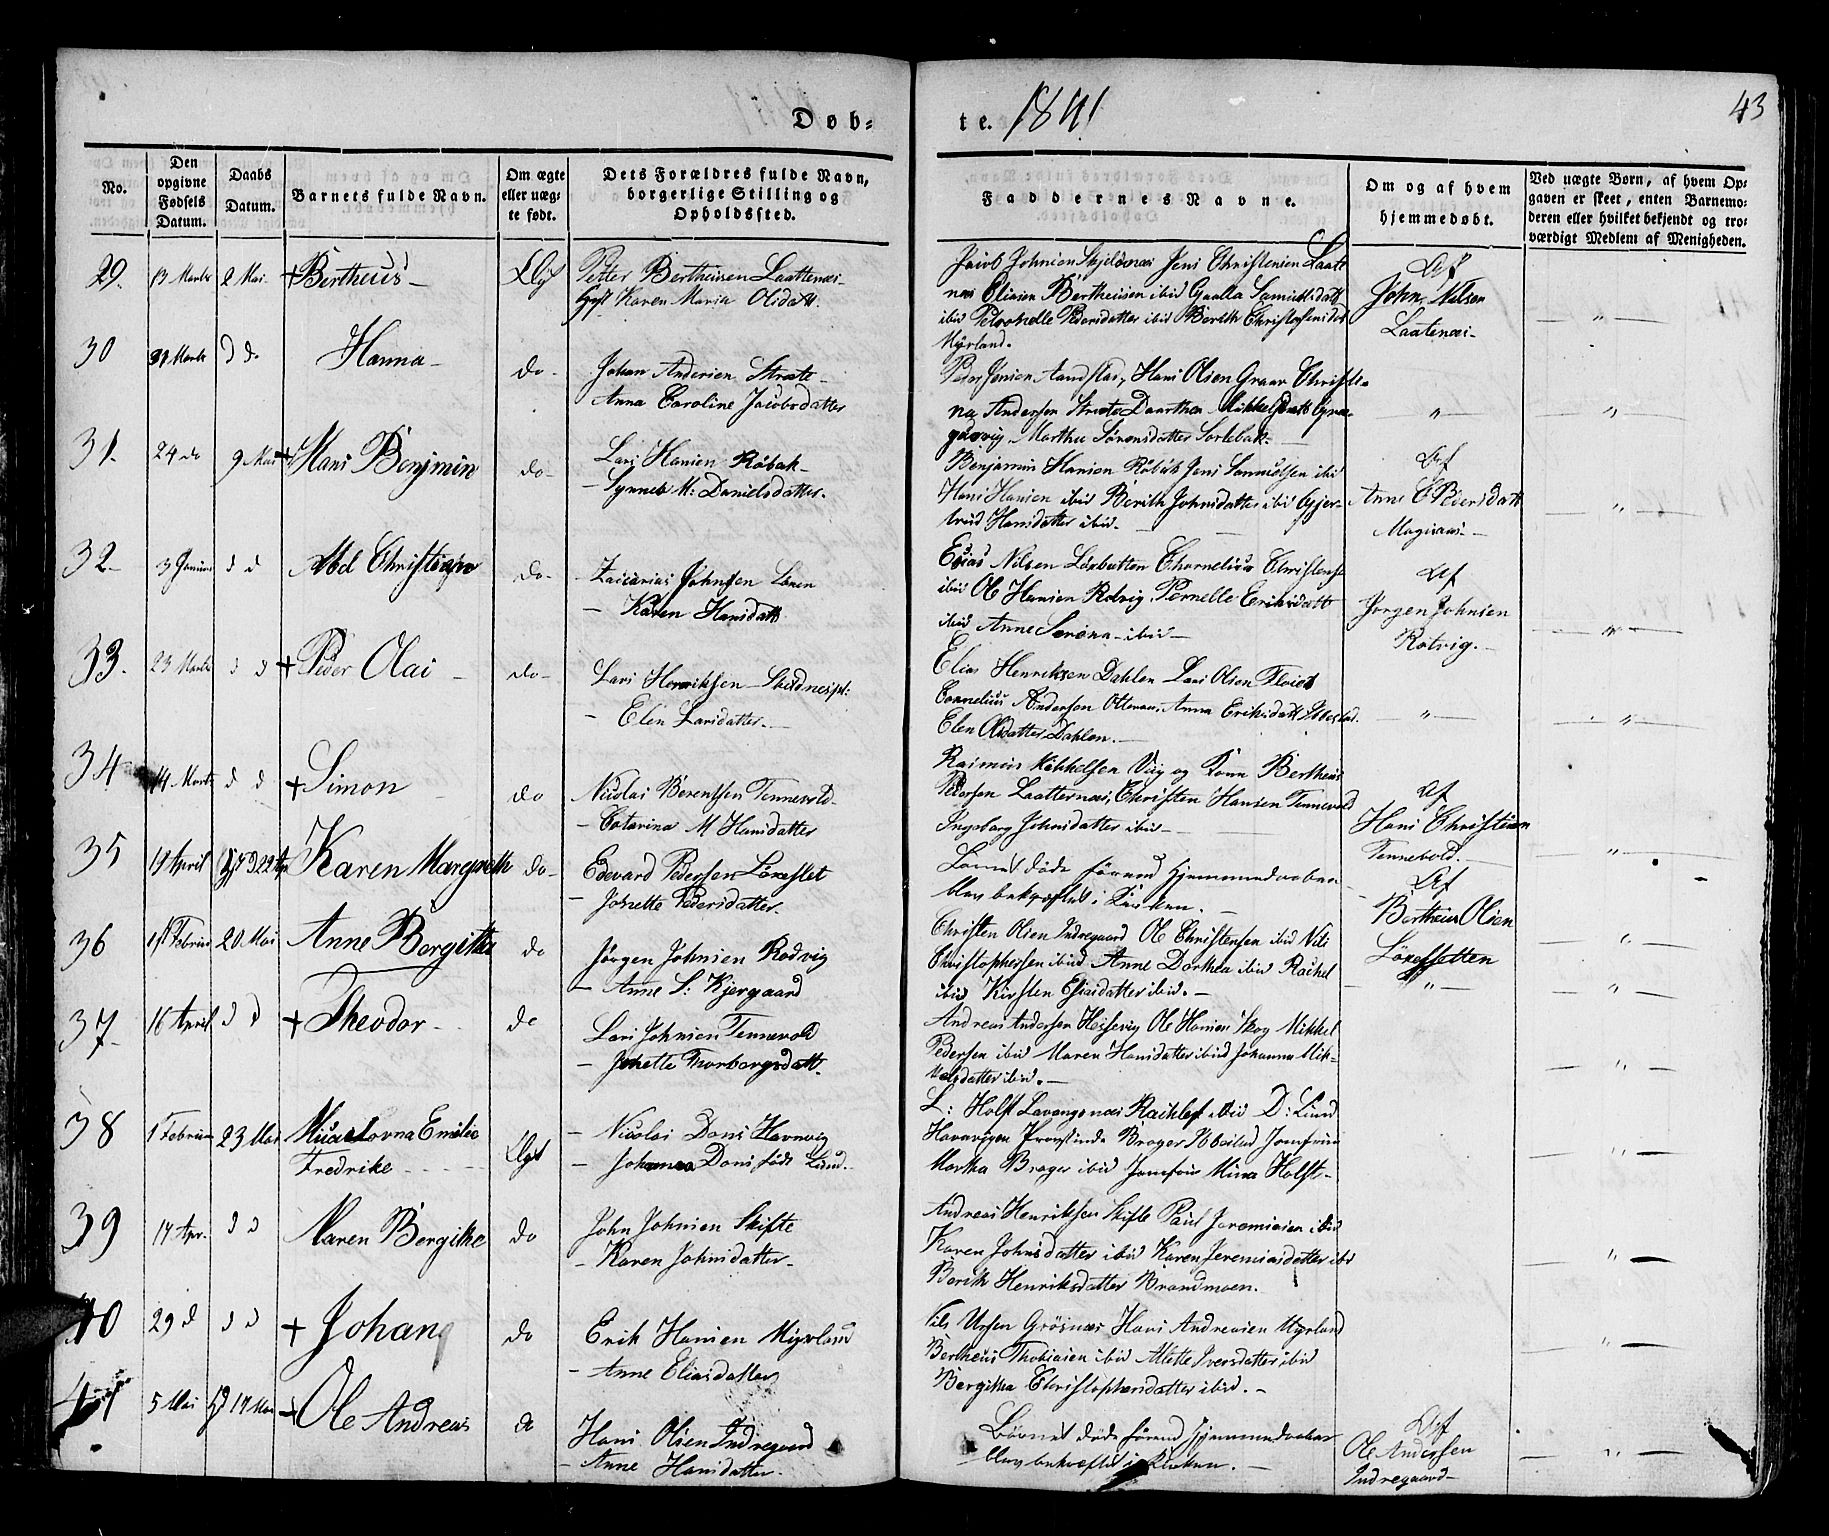 Døb-
te. 1841
43
No.
Den opgivne Fødsels Datum.
Daabs Datum.
Barnets fulde Navn.
Om ægte eller uægte født.
Dets Forældres fulde Navn, borgerlige Stilling og Opholdssted.
Faddernes Navne.
Om og af hvem hjemmedøbt.
Ved uægte Børn, af hvem Opgaven er skeet, enten Barnemoderen eller hvilket bekjendt og troværdigt Medlem af Menigheden.
29. 13 Marts 2 Mai + Bertheus
Petter Bertheusen Laattenæs
Karen Maria Olsdatt.
Jacob Johnsen Skjeldnæs Jens Christensen Laatt
næs Eliasen Bertheusen ibid Samuelsdatt
ibid Petronelle Pedersdatter ibid Berith Christophersdat
Myrland.
Af
John Nilsen
Laatenæs
30 Marts d do Hanna do
Johan Andersen Strate
Anna Caroline Jacobsdatter
Peder Jensen Aandstad, Hans Olsen Graav Christi-
na Andersen Strate Daarthea Mikkelsdatt
Martha Sørensdatter
31. 24 do 9 Mai + Hans Benjmin do
Lars Hansen Røbak
Synneb M: Danielsdatter.
Benjamin Hansen Røbak Jens Samuelsen ibid
Hans Hansen ibid Berith Johnsdatter ibid Gjer-
trud Hansdatter ibid.
Af
Anne C Pedersdatt
32 3 Januar d d Abel Christian do
Zaccarias Johnsen
Karen Hansdatt
Esias Nilsen Chornelius Christens
ibid Ole Hansen Rotvig, Pernelle Eriksdatt
ibid Anne Serena ibid
Af
Jørgen Johnsen
Rotvig.
33. 23 Marts d d + Peder Olai do
Lars Henriksen
Elen Larsdatter.
Elias Henriksen Dahlen Lars Olsen
Cornelius Andersen Anna Eriksdatt
Elen Olsdatter Dahlen.
34 14 Marts d d + Simon do
Nicolai Berentsen Tennevold
Catarina M Hansdatter
Rasmus Mikkelsen Vig og Kone Bertheus
Pedersen Laatternæs, Christen Hansen Tennevold
Ingeborg Johnsdatter ibid
Af
Hans Christian
Tennevold.
35 19 April Karen Margreth do
Edevard Pedersen
Johette Pedersdatter.
Barnet døde førend Hjemmedaaben
blev bekræftet i Kirken.
Af
Bertheus Olsen
36 Februar 20 Mai Anne Bergitha do
Jørgen Johnsen Rodvig
Anne S: Kjergaard
Christen Olsen Indregaard Ole Christensen ibid Nils
Christophersen ibid Anne Dorthea ibid Rachel
ibid Kirsten Esiasdatter ibid.
37 16 April d d + Theodor do
Lars Johnsen Tennevold
Johette Thorborgsdatt.
Andreas Andersen Ole Hansen Skog Mikkel
Pedersen ibid Maren Hansdatter ibid Johanna Mik-
kelsdatter ibid.
38 1 Februar 23 Mai Emilie
Fredrike
Nicolai Dons Havnvig
Johanna Dons født Lund.
L: Holst Lavangsnæs ibid D: Lund
Havnvigen Provstinde Brager Ibbestad Jomfrue
Martha Brager ibid Jomfrue Mina Holst
39 17 Apr. d d Maren Bergithe do
John Johnsen Skifte
Karen Johnsdatter
Andreas Henriksen Skifte Paul Jeremiasen ibid
Karen Johnsdatter ibid Karen Jeremiasdatter ibid
Berith Henriksdatter Brandmoen.
40 29 d d d + Johan do
Erik Hansen Myrland
Anne Eliasdatter
Nils Grøsnæs Hans Andreasen Myrland
Bertheus Thobiasen ibid Mette Iversdatter ibid
Bergitha Christophersdatter ibid.
41 5 Mai Ole Andreas do
Hans Olsen Indregaard
Anne Hansdatter.
Barnet døde førend Hjemmedaaben
blev bekræftet i Kirken.
Af
Ole Andersen
Indregaard